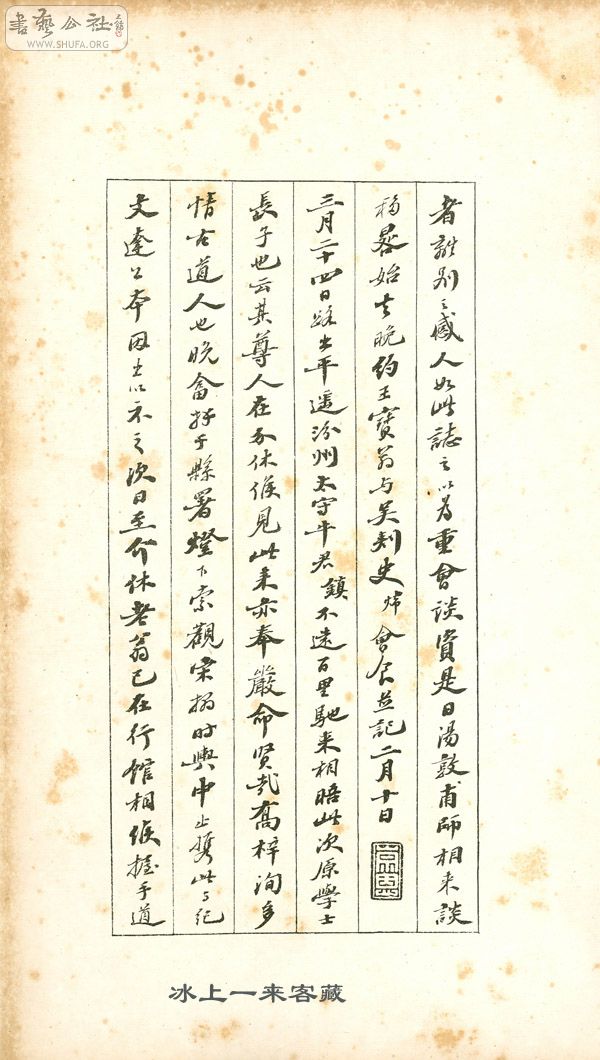 書藝公社
WWW.SHUFA.ORG
者離別之感人如此誌之以為重會談資是日湯敦甫師相來談
移晷始去晚約王寶翁與吳刺史 會食並記二月十日
三月二十四日路出平遥汾州太守牛君鎮不遠百里馳来相晤此次原學士
長子也云其尊人在介休候見此来亦奉嚴命賢哉喬梓洵多
情古道人也晚 于縣署燈下索觀宋搨時輿中止攜此与紀
文達公本因出以示之次日至介休老翁已在行馆相候握手道
冰上一来客藏